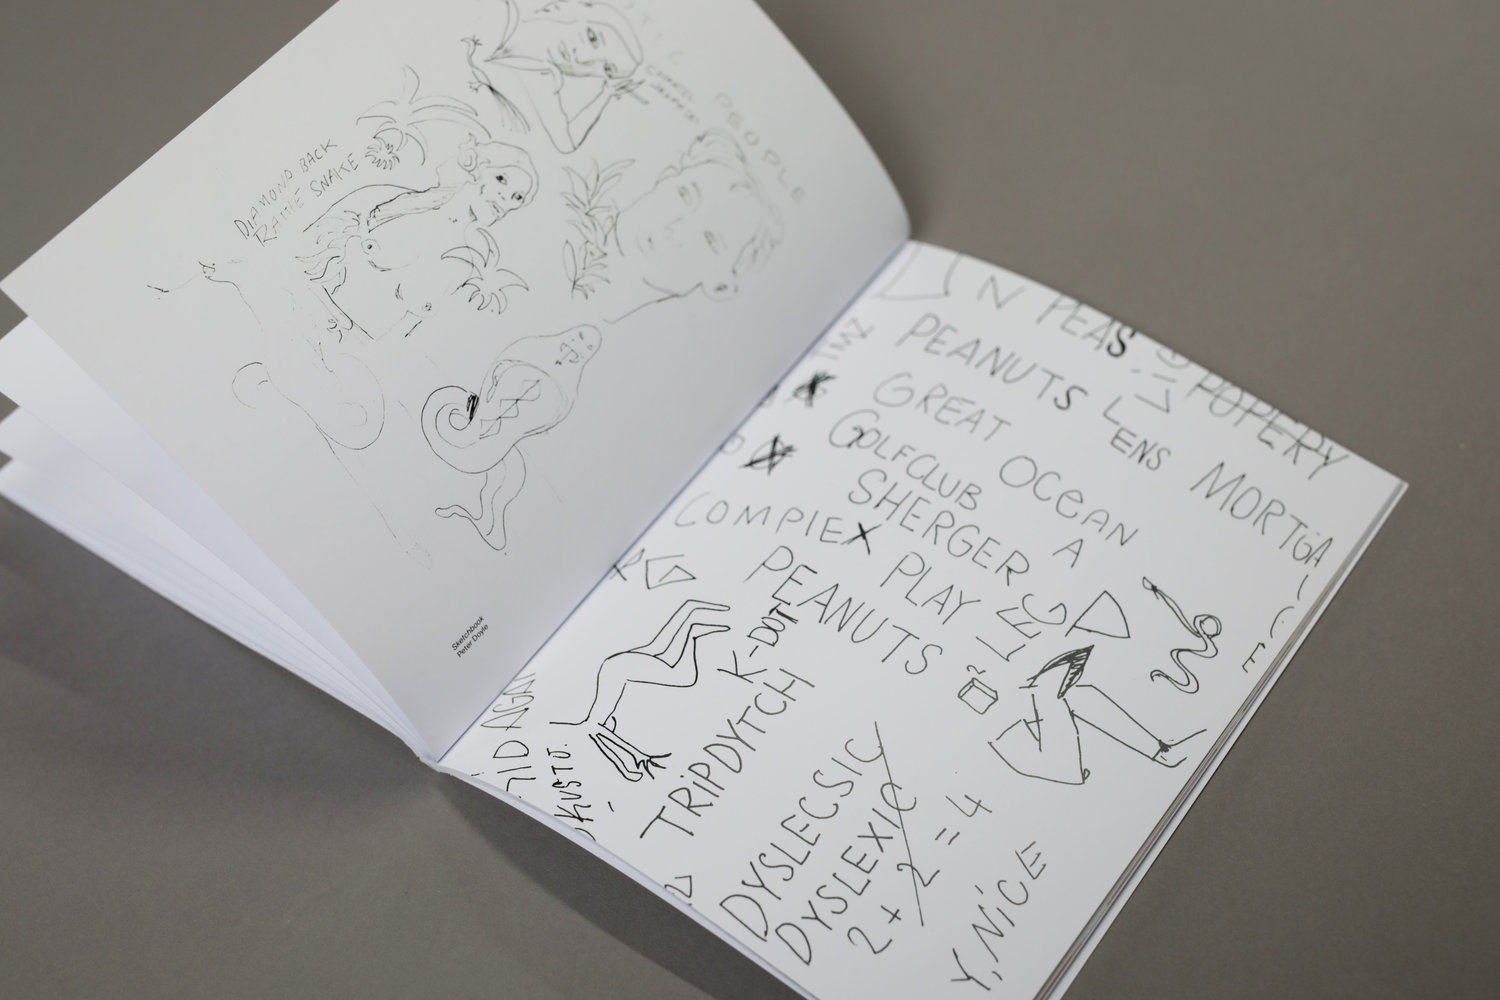 PEOPLE
DIAMOND BACK
RATTLE SNAKE
Sketchbook
Peter Doyle
N PEAS
POPERY
PEANUTS
LENS
MORTGA
GREAT OCEAN
GOLFCLUB
SHERGER A
COMPlEX PLAY
PEANUTS
LEG
K-DOT
TRiPDYTCH
KUSTO.
DYSLECSIC
DYSLEXIC
2 + 2 = 4
Y, NiCE